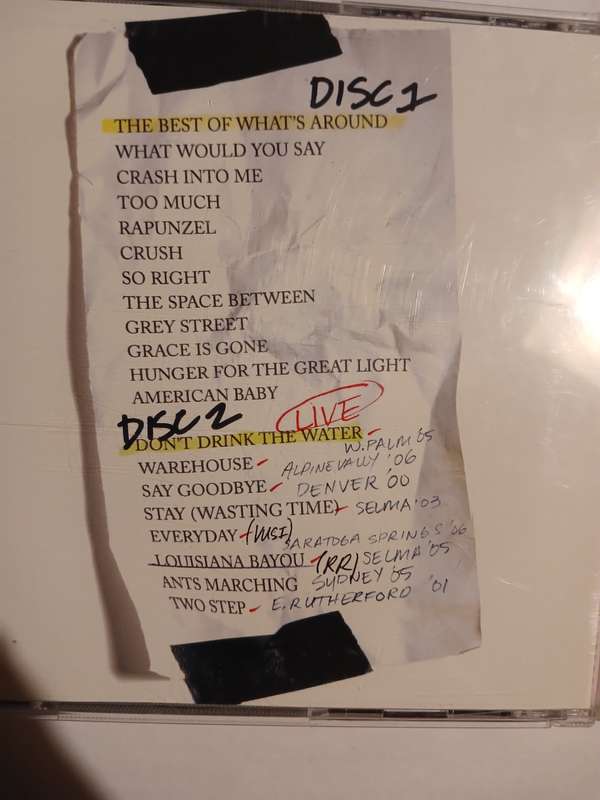 DISC 1
THE BEST OF WHAT'S AROUND
WHAT WOULD YOU SAY
CRASH INTO ME
TOO MUCH
RAPUNZEL
CRUSH
SO RIGHT
THE SPACE BETWEEN
GREY STREET
GRACE IS GONE
HUNGER FOR THE GREAT LIGHT
AMERICAN BABY
DISC 2 LIVE
DON'T DRINK THE WATER - W.PALM '05
WAREHOUSE - ALPINE VALLY '06
SAY GOODBYE - DENVER '00
STAY (WASTING TIME) - SELMA '03
EVERYDAY - (MSI) SARATOGA SPRINGS '06
LOUISIANA BAYOU - (RR) SELMA '05
ANTS MARCHING SYDNEY '05
TWO STEP - E.RUTHERFORD '01